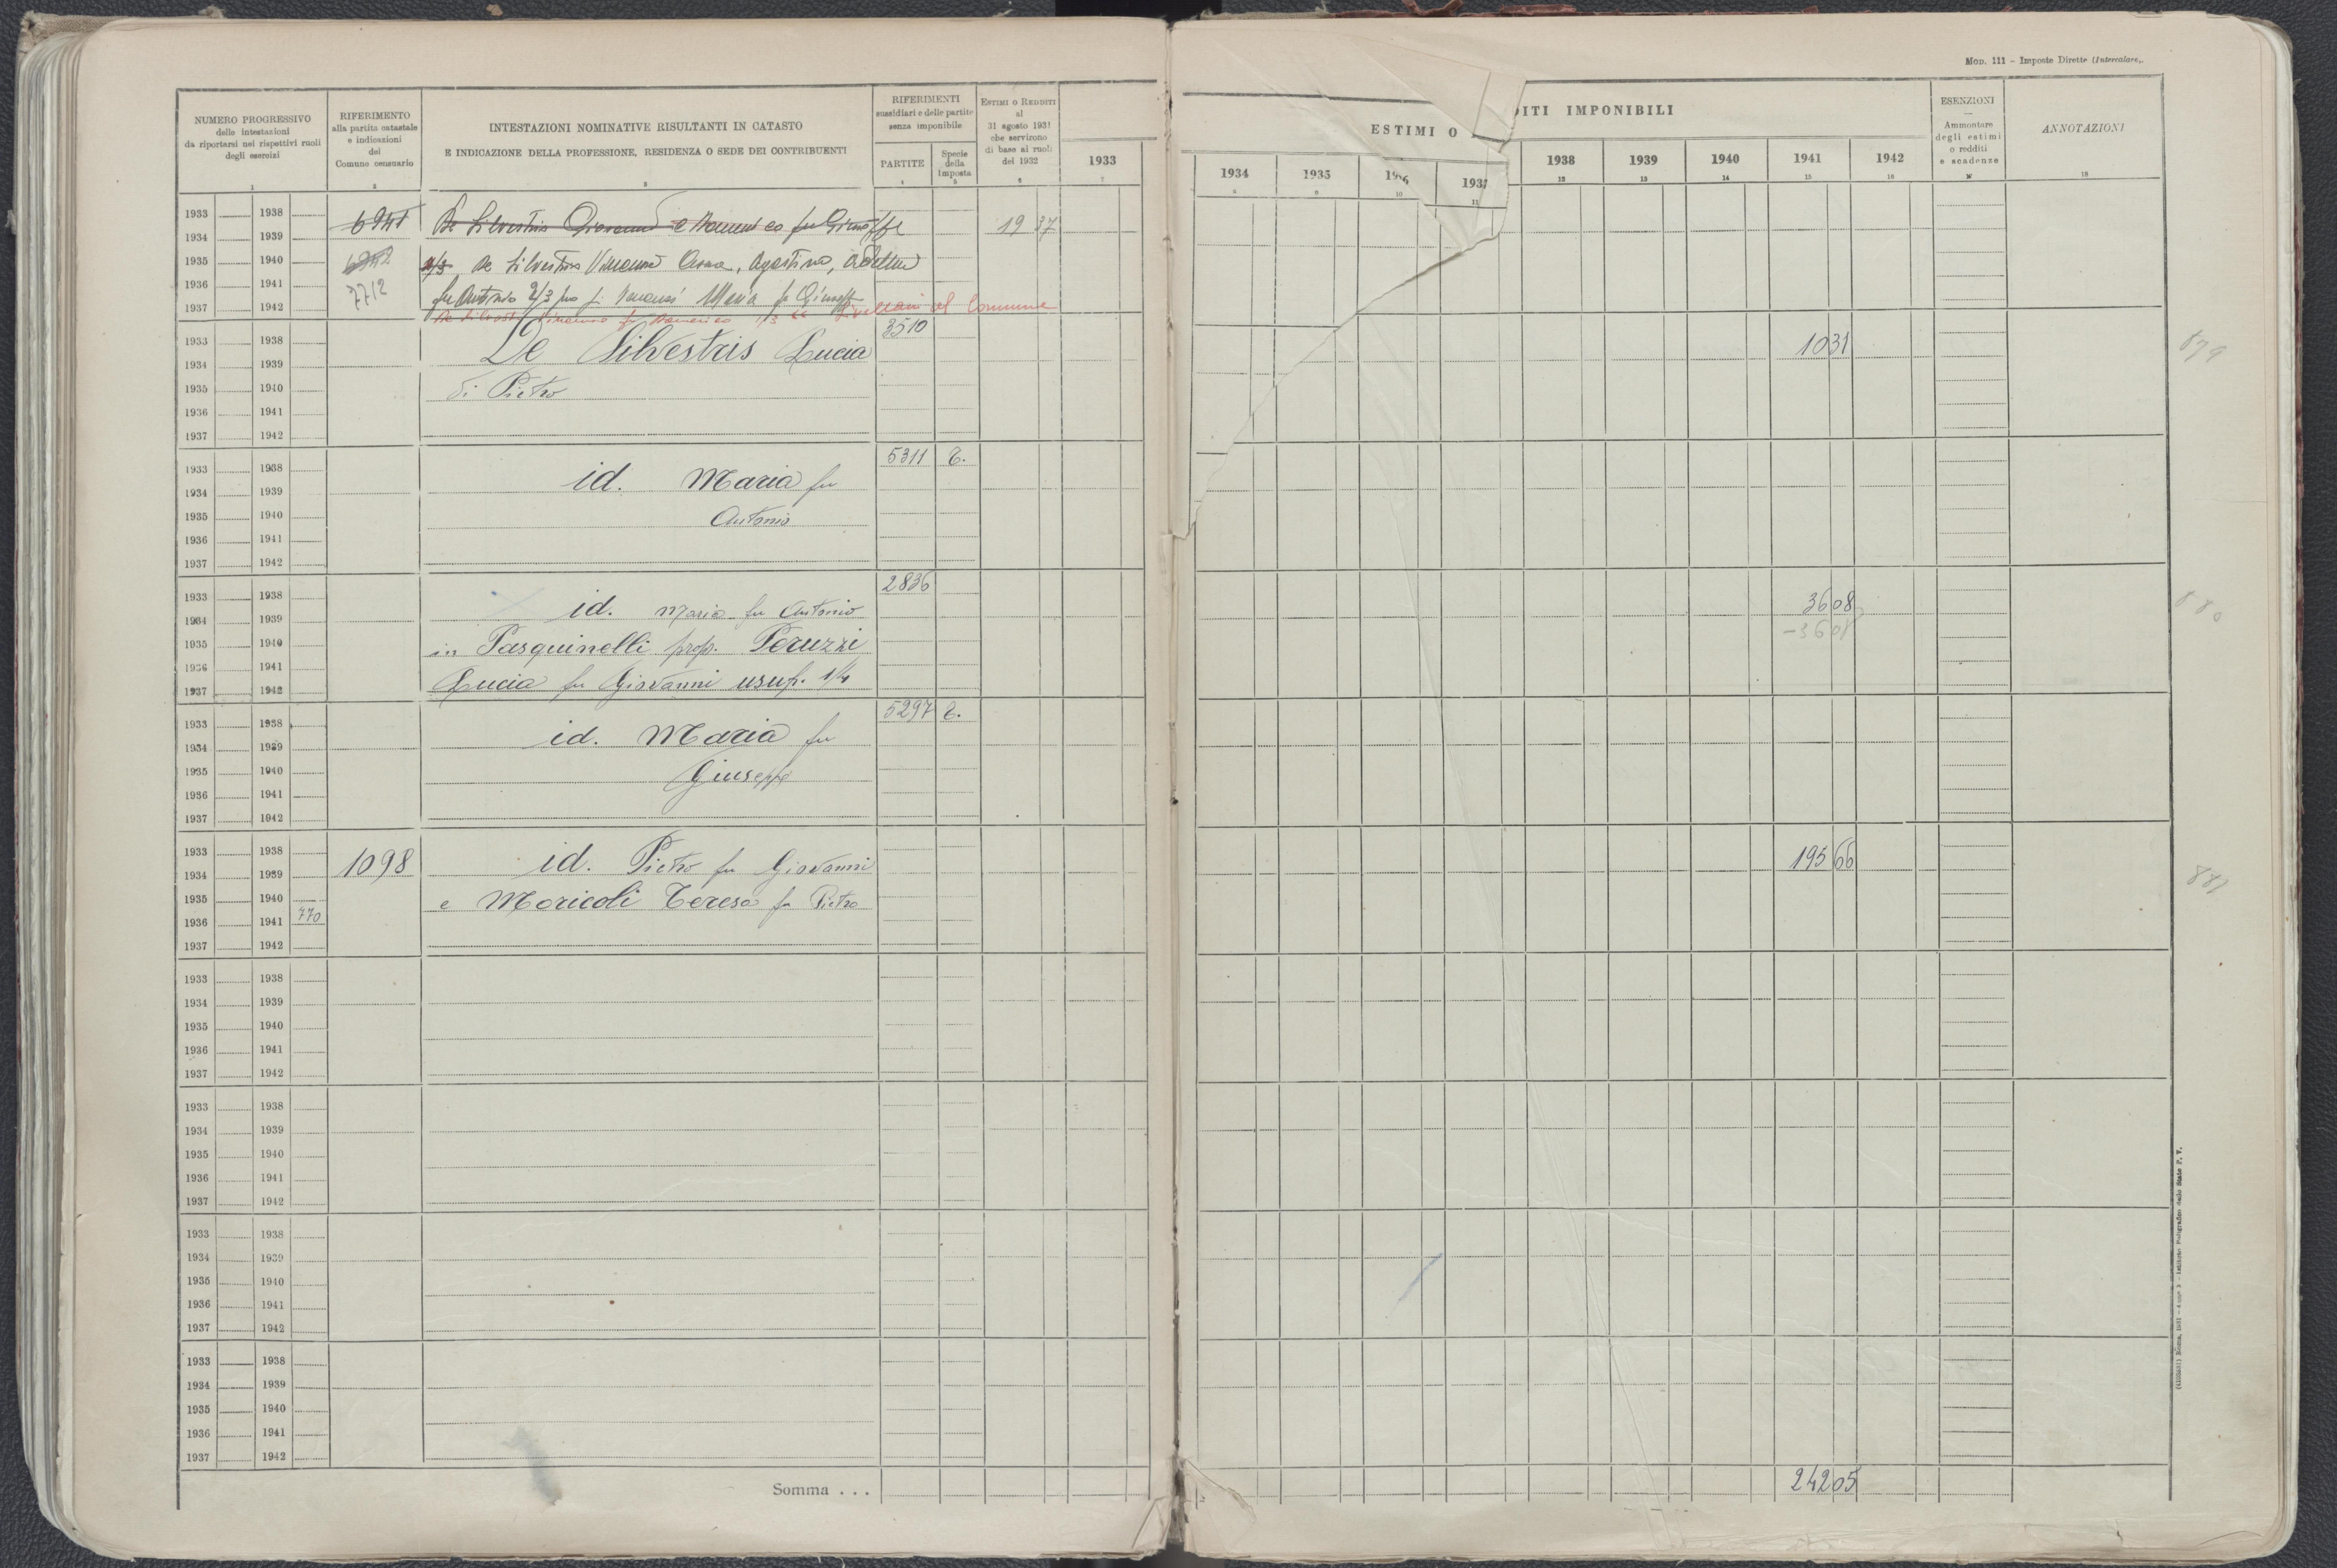 Mod. 111 - Imposte Dirette (Intercalare).
NUMERO PROGRESSIVO
delle intestazioni
da riportarsi nei rispettivi ruoli
degli esercizi
1
RIFERIMENTO
alla partita catastale
e indicazioni
del
Comune censuario
2
INTESTAZIONI NOMINATIVE RISULTANTI IN CATASTO
E INDICAZIONE DELLA PROFESSIONE, RESIDENZA O SEDE DEI CONTRIBUENTI
3
RIFERIMENTI
sussidiari e delle partite
senza imponibile
PARTITE
4
Specie
della
imposta
5
ESTIMI O REDDITI
al
31 agosto 1931
che servirono
di base ai ruoli
del 1932
6
1933
7
ESTIMI O
DITI IMPONIBILI
1934
8
1935
9
1936
10
1937
11
1938
12
1939
13
1940
14
1941
15
1942
16
ESENZIONI
Ammontare
degli estimi
o redditi
e scadenze
17
ANNOTAZIONI
18
1933 1938
1934 1939
1935 1940
1936 1941
1937 1942
6941
De Silvestris Giovanni e Domenico fu Giuseppe
19 37
6942
2/3 De Silvestris Vincenzo Anna, Agostino,
7712
fu Antonio 2/3 Maria fu Giuseppe
De Silvestris Vincenzo fu Domenico 1/3 Livellari al Comune
1933 1938
1934 1939
1935 1940
1936 1941
1937 1942
De Silvestris Lucia
3510
10 31
879
di Pietro
1933 1938
1934 1939
1935 1940
1936 1941
1937 1942
id. Maria fu
5311 T.
Antonio
1933 1938
1934 1939
1935 1940
1936 1941
1937 1942
id. Maria fu Antonio
2836
36 08
880
in Pasquinelli prop. Peruzzi
-36 08
Lucia fu Giovanni usuf. 1/4
1933 1938
1934 1939
1935 1940
1936 1941
1937 1942
id. Maria fu
5297 T.
Giuseppe
1933 1938
1934 1939
1935 1940
1936 1941 770
1937 1942
1098
id. Pietro fu Giovanni
195 66
e Moricoli Teresa fu Pietro
1933 1938
1934 1939
1935 1940
1936 1941
1937 1942
1933 1938
1934 1939
1935 1940
1936 1941
1937 1942
1933 1938
1934 1939
1935 1940
1936 1941
1937 1942
1933 1938
1934 1939
1935 1940
1936 1941
1937 1942
Somma . . .
242 05